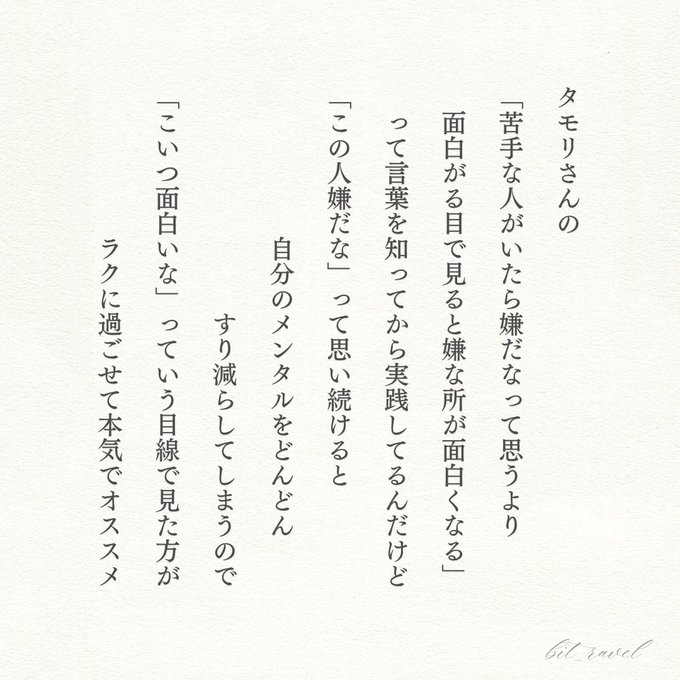 タモリさんの
「苦手な人がいたら嫌だなって思うより
面白がる目で見ると嫌な所が面白くなる」
って言葉を知ってから実践してるんだけど
「この人嫌だな」って思い続けると
自分のメンタルをどんどん
すり減らしてしまうので
「こいつ面白いな」っていう目線で見た方が
ラクに過ごせて本気でオススメ
bit_ravel